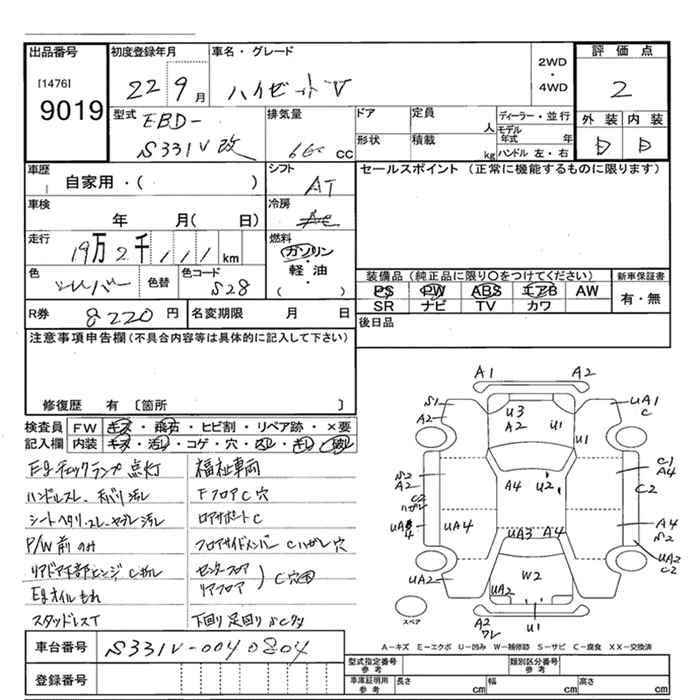 出品番号 初度登録年月 車名・グレード 2WD・4WD 評価点
[1476] 22 9月 ハイゼットV 2
9019 型式 EBD- 排気量 ドア 定員 人 ディーラー・並行 外装 内装
S331V改 660 CC 形状 積載 kg モデル年式 年 ハンドル 左・右 D D
車歴 自家用・( ) シフト AT セールスポイント (正常に機能するものに限ります)
車検 年 月( 日) 冷房 AC
走行 19万2千111km 燃料 ガソリン・軽油・( )
色 シルバー 色替 色コード S28 装備品 (純正品に限り○をつけてください) 新車保証書
PS PW ABS エアB AW 有・無
SR ナビ TV カワ
R券 8220円 名変期限 月 日 後日品
注意事項申告欄(不具合内容等は具体的に記入して下さい)
修復歴 有 〔箇所 〕
検査員 FW キズ・飛石・ヒビ割・リペア跡・×要
記入欄 内装 キズ・汚レ・コゲ・穴・スレ・キレ
Egチェックランプ点灯 福祉車両
ハンドルスレ、天バリ汚レ FフロアC穴
シートヘタリ・スレ・ヤブレ・汚レ ロアサポートC
P/W前のみ フロアサイドメンバーCハガレ穴
リアドア下部ヒンジCガレ センターフロア
Egオイルもれ リアフロア C穴
スタッドレスT 下回り足回りSCケ
車台番号 S331V-0040804
登録番号
A1 A2
S1 A2 U3 A2 U1 U1 UA1 C
S2 A2 C2 ハガレ A4 U2 C1 A4 C2
UA4 UA4 UA3 A4 A4 S2
UA2 W2 UA2 UA2 C2
スペア A2 ワレ U1
A-キズ E-エクボ U-凹み W-補修跡 S-サビ C-腐食 XX-交換済
型式指定番号 参考 類別区分番号 参考
車庫証明用 参考 長さ cm 幅 cm 高さ cm